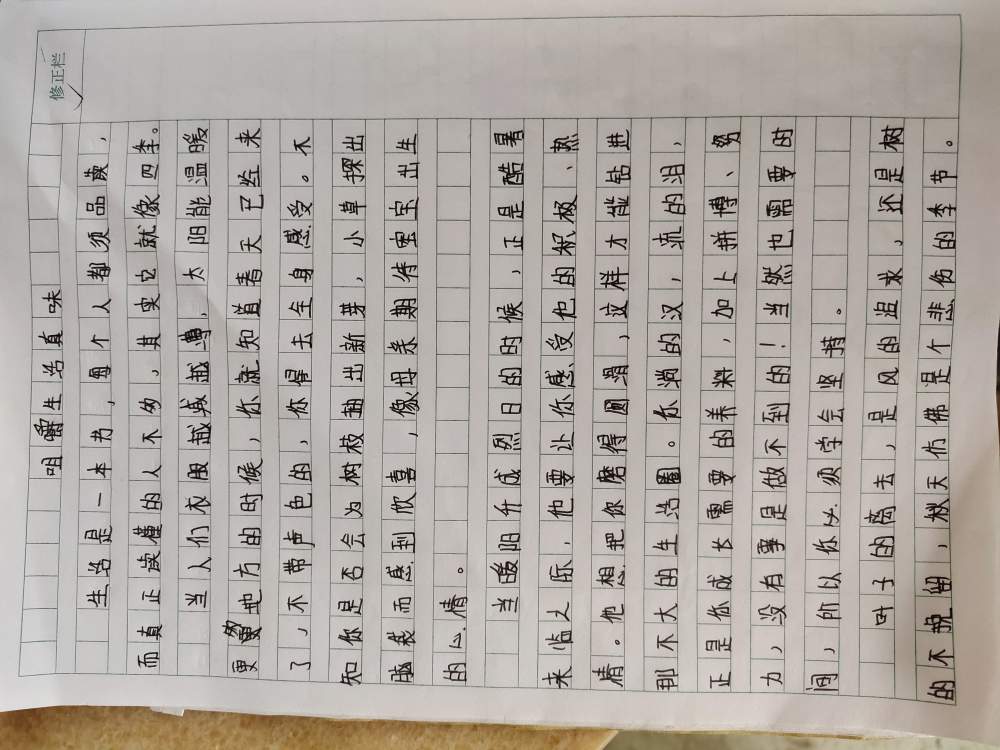 修正栏
咀嚼生活真味
生活是一本书，每个人都须品读，
而真正读懂的人不多，其实它就像四季。
当人们衣服越减越薄，太阳能温暖
更多地方的时候，你就知道春天已经来
了，不带声色的，你得去全身感受。不
知你是否会为树枝抽出新芽，小草探出
脑袋而感到欣喜，像母亲期待宝宝出生
的心情。
当暖阳升成烈日的时候，正是酷暑
来临之际，他要让你感受他的积极、热
情。他想把你磨得圆滑，这样才能钻进
那不大的生活圈。你淌的汉，流的泪，
正是你成长需要的养料，加上拼博、努
力，没有事是做不到的！当然也需要时
间，所以你必须学会坚持。
叶子的离去，是风的追求，还是树
的不挽留，秋天仿佛是个悲伤的季节。